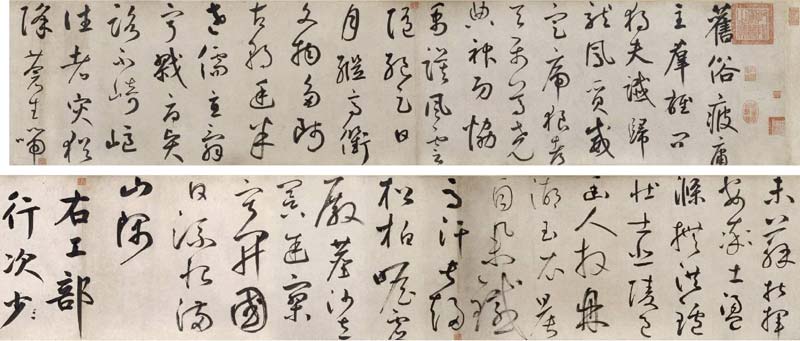 舊俗疲庸
主羣雄問
獨夫讖歸
龍鳳質威
定虎狼都
天屬尊堯
典神功協
禹謨風雲
隨絕足日
月繼高衢
文物多師
古朝廷半
老儒直詞
寧戮辱賢
路不崎嶇
往者災猶
降蒼生喘
未蘇指揮
安率土盪
滌撫洪爐
壯士悲陵邑
幽人拜鼎
湖玉衣晨
自舉鐵
馬汗常趨
松柏瞻虛
殿塵沙立
冥途寂
寥開國
日流恨滿
山隅
右工部
行次